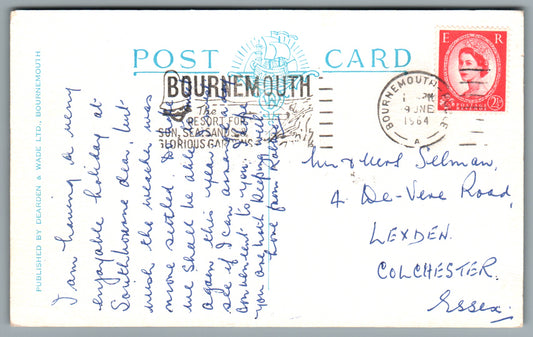 POST CARD
PUBLISHED BY DEARDEN & WADE LTD., BOURNEMOUTH
E R
2½
BOURNEMOUTH
4 JNE
1964
A
BOURNEMOUTH
The
RESORT FOR
SUN, SEA, SANDS &
GLORIOUS GARDENS
I am having a very
enjoyable holiday at
Southbourne dear, but
wish the weather was
more settled. Do
we shall be able
again this year
see if I can arrange
convenient to you.
you are both keeping well
Love from
Mr & Mrs Selman,
4 De-Vere Road,
LEXDEN.
COLCHESTER.
Essex.